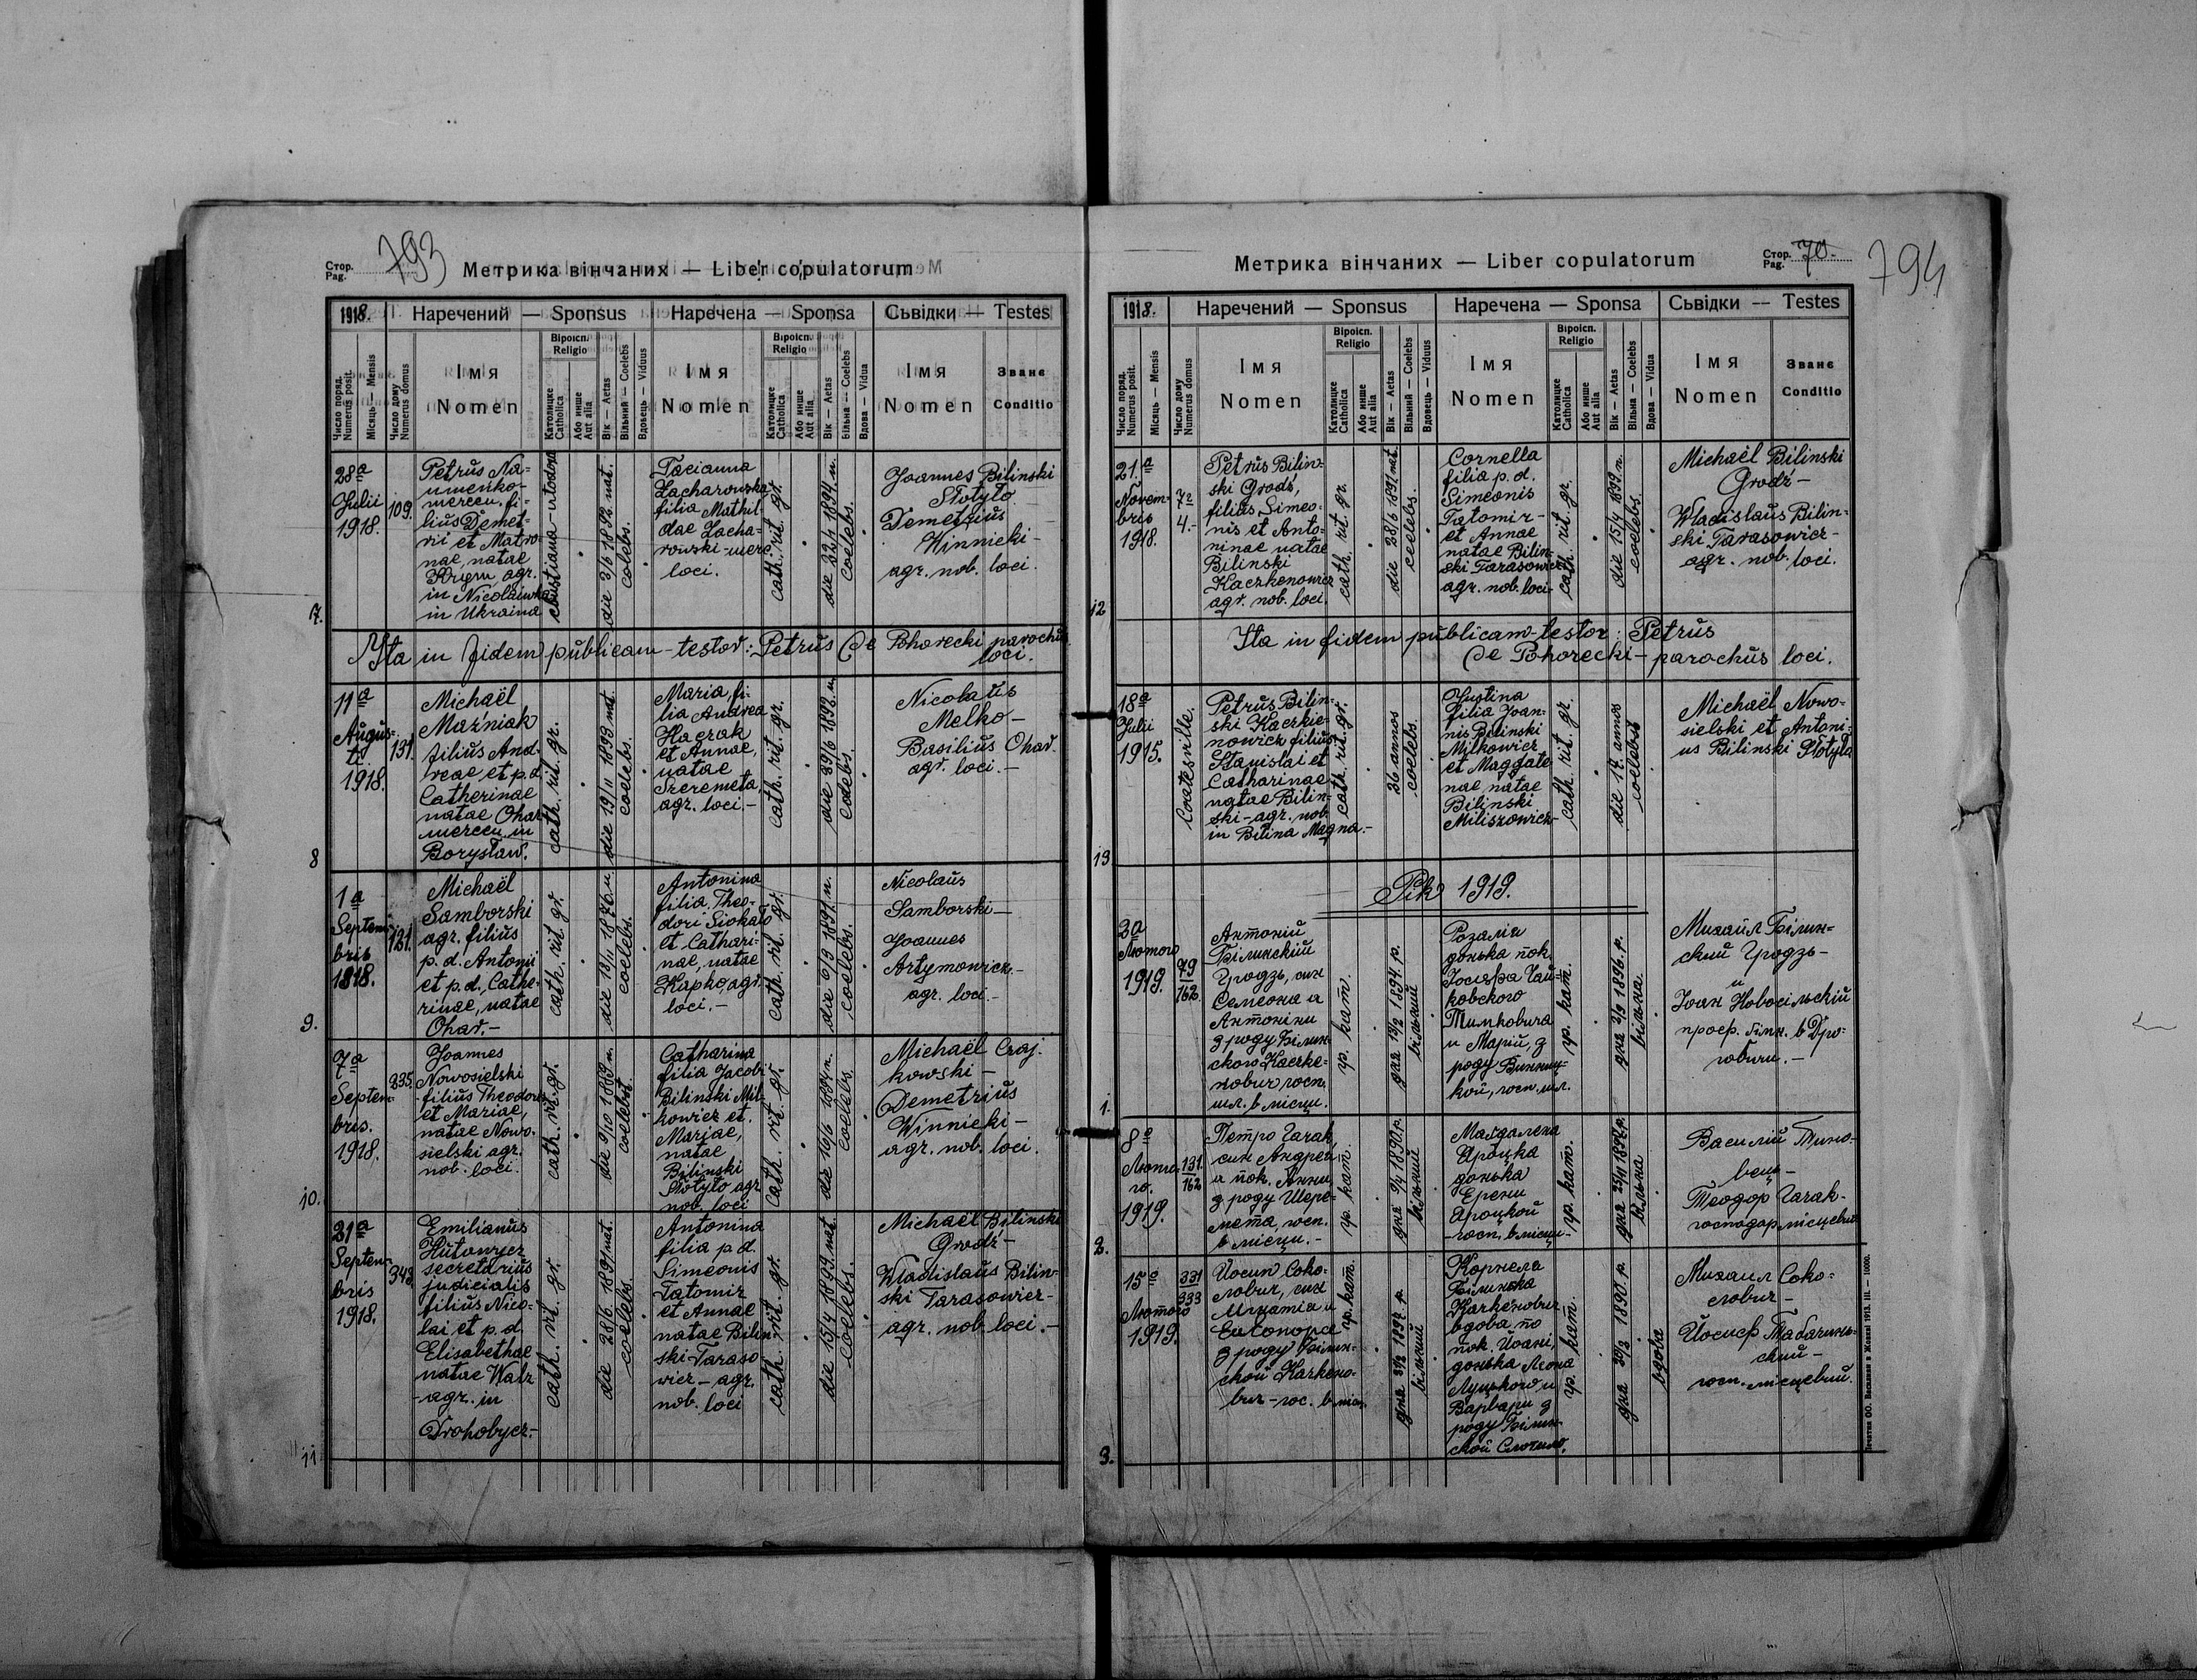 Стор. Pag. 793
Метрика вінчаних — Liber copulatorum
1918.
Наречений — Sponsus
Наречена — Sponsa
Сьвідки — Testes
Число поряд. Numerus posit.
Місяць — Mensis
Число дому Numerus domus
Імя Nomen
Віроісп. Religio
Католицке Catholica
Або инше Aut alia
Вік — Aetas
Вільний — Coelebs
Вдовець — Viduus
Імя Nomen
Віроісп. Religio
Католицке Catholica
Або инше Aut alia
Вік — Aetas
Вільна — Coelebs
Вдова — Vidua
Імя Nomen
Званє Conditio
7.
28ª
Julii
1918.
109.
Petrus Na-
umenko-
mercen. fi-
lius Demet-
rii et Matro-
nae, natae
agr.
in Nicolaiwka
in Ukraina
die 3/6 1892 nat.
colebs.
Tacianna
Zacharowska
filia Mathil-
dae Zacha-
rowski-merc.
loci.
cath. rit. gr.
die 22/1 1894 n.
coelebs.
Joannes Bilinski
Słotyło
Demetrius
Winnicki-
agr. nob. loci.
Ita in fidem publicam-testor: Petrus de Pohorecki parochus
loci.
8
11ª
Augus-
ti
1918.
131.
Michaël
Maźniak
filius And-
reae et p.d.
Catherinae
natae Ohar
mercen. in
Borysław.
cath. rit. gr.
die 19/11 1899 nat.
coelebs.
Maria, fi-
lia Andrea
Haczak
et Annae,
natae
Szeremeta,
agr. loci.-
cath. rit. gr.
die 29/6 1898 n.
coelebs.
Nicolaus
Melko-
Basilius Ohar.
agr. loci.-
9.
1ª
Septem-
bris
1918.
121.
Michaël
Samborski
agr. filius
p.d. Antonii
et p.d. Cathe-
rinae, natae
Ohar.-
cath. rit gr.
die 18/11 1876 n.
coelebs.
Antonina
filia Theo-
dori Siokało
et Cathari-
nae, natae
Kapko, agr.
loci.-
cath. rit. gr.
die 6/3 1897 n.
coelebs.
Nicolaus
Samborski-
Joannes
Artymowicz.-
agr. loci.-
10.
7ª
Septem-
bris.
1918.
235.
Joannes
Nowosielski
filius Theodori
et Mariae,
natae Nowo-
sielski agr.
nob. loci.
cath. rit. gr.
die 9/10 1889 n.
coelebs.
Catharina
filia Jacobi
Bilinski Mil-
kowicz et.
Mariae,
natae
Bilinski
Słotyło agr.
nob. loci
cath. rit. gr.
die 16/6 1894 n.
coelebs.
Michaël Czaj-
kowski-
Demetrius
Winnicki-
agr. nob. loci.
11
21ª
Septem-
bris
1918.
343.
Emilianus
Hutowycz
secretarius
judicialis
filius Nico-
lai et p.d.
Elisabethae
natae Walz
-agr. in
Drohobycz-
cath. rit. gr.
die 28/6. 1891 nat.
coelebs.
Antonina
filia p.d.
Simeonis
Tatomir
et Annae
natae Bilin-
ski-Taraso-
wicz-agr.
nob. loci
cath. rit. gr.
die 15/4 1899. nat.
coelebs.
Michaël Bilinski
Grodź-
Wladislaus Bilin-
ski Tarasowicz-
agr. nob. loci.-
Стор. Pag. 70.
794
Метрика вінчаних — Liber copulatorum
1918.
Наречений — Sponsus
Наречена — Sponsa
Сьвідки — Testes
Число поряд. Numerus posit.
Місяць — Mensis
Число дому Numerus domus
Імя Nomen
Віроісп. Religio
Католицке Catholica
Або инше Aut alia
Вік — Aetas
Вільний — Coelebs
Вдовець — Viduus
Імя Nomen
Віроісп. Religio
Католицке Catholica
Або инше Aut alia
Вік — Aetas
Вільна — Coelebs
Вдова — Vidua
Імя Nomen
Званє Conditio
12
21.ª
Novem-
bris
1918.
Petrus Bilin-
ski Grodź,
filius Simeo-
nis et Anto-
ninae natae
Bilinski
Kaczkenowicz
agr. nob. loci.
cath. rit. gr.
die 28/6 1892 nat.
coelebs.
Cornella
filia p.d.
Simeonis
Tatomir-
et Annae
natae Bilin-
ski Tarasowicz
agr. nob. loci-
cath. rit. gr.
die 15/4 1899. n.
coelebs.
Michaël Bilinski
Grodź-
Wladislaus Bilin-
ski Tarasowicz-
agr. nob. loci.
Ita in fidem publicam-testor: Petrus
de Pohorecki-parochus loci.
13
18ª
Julii
1915.
Coatesville.
Petrus Bilin-
ski Kaczke-
nowicz filius
Stanislai et
Catharinae
natae Bilin-
ski-agr. nob.
in Bilina Magna.-
cath. rit. gr.
36 annos
coelebs.
Justina
filia Joan-
nis Bilinski
Milkowicz
et Magdale-
nae, natae
Bilinski
Miliszowicz-
cath. rit. gr.
die 19. annos
coelebs
Michaël Nowo-
sielski et Antoni-
us Bilinski Słotyła
Рік 1919.
1.
3ª
Лютого
1919.
79
162
Антоній
Білинскій
Гродзь, син
Семеона и
Антоніни
з роду Білин-
ского Качке-
нович госп.
шл. в місци.
гр. кат.
дня 13/2 1894. р.
вільний
Розалія
донька пок.
Іосифа Чай-
ковского
Тимковича
и Марій, з
роду Винниц-
кой, госп. шл.
гр. кат.
дня 2/9 1896. р.
вільна.
Михаил Білин-
ский Гродзь-
и
Іоан Новосільскій
проф. гімн. в Дро-
гобичи.-
2.
8ª
Люто-
го.
1919.
131.
162
Петро Гачак,
син Андрея
и пок. Анни
з роду Шере-
мета, госп.
в місци.-
гр. кат.
1890 р.
вільний
Магдалена
Яроцка
донька
Ерени
Яроцкой
-госп. в місци-
гр. кат.
дня 25/11 1892 р.
вільна
Василій Тимо-
вец-
Теодор Гачак-
господар місцевий
3.
15ª
Лютого
1919.
331
333
Йосип Соко-
лович, син
Игнатія и
Елеонори
з роду Білин-
ской Качкено-
вич-гос. в місц.
гр. кат.
1892. р.
вільний
Корнела
Білинска
Качкенович
вдова по
пок. Йоані,
донька Леона
Луцького и
Варвари з
роду Білин-
ской Слотило.
гр. кат.
дня 20/3 1890. р.
вдова
Михаил Соко-
лович-
Йосиф Табачинь-
ский-
госп. місцевий.
Печатня ОО. Василиян в Жовкві 1913. III. — 10000.